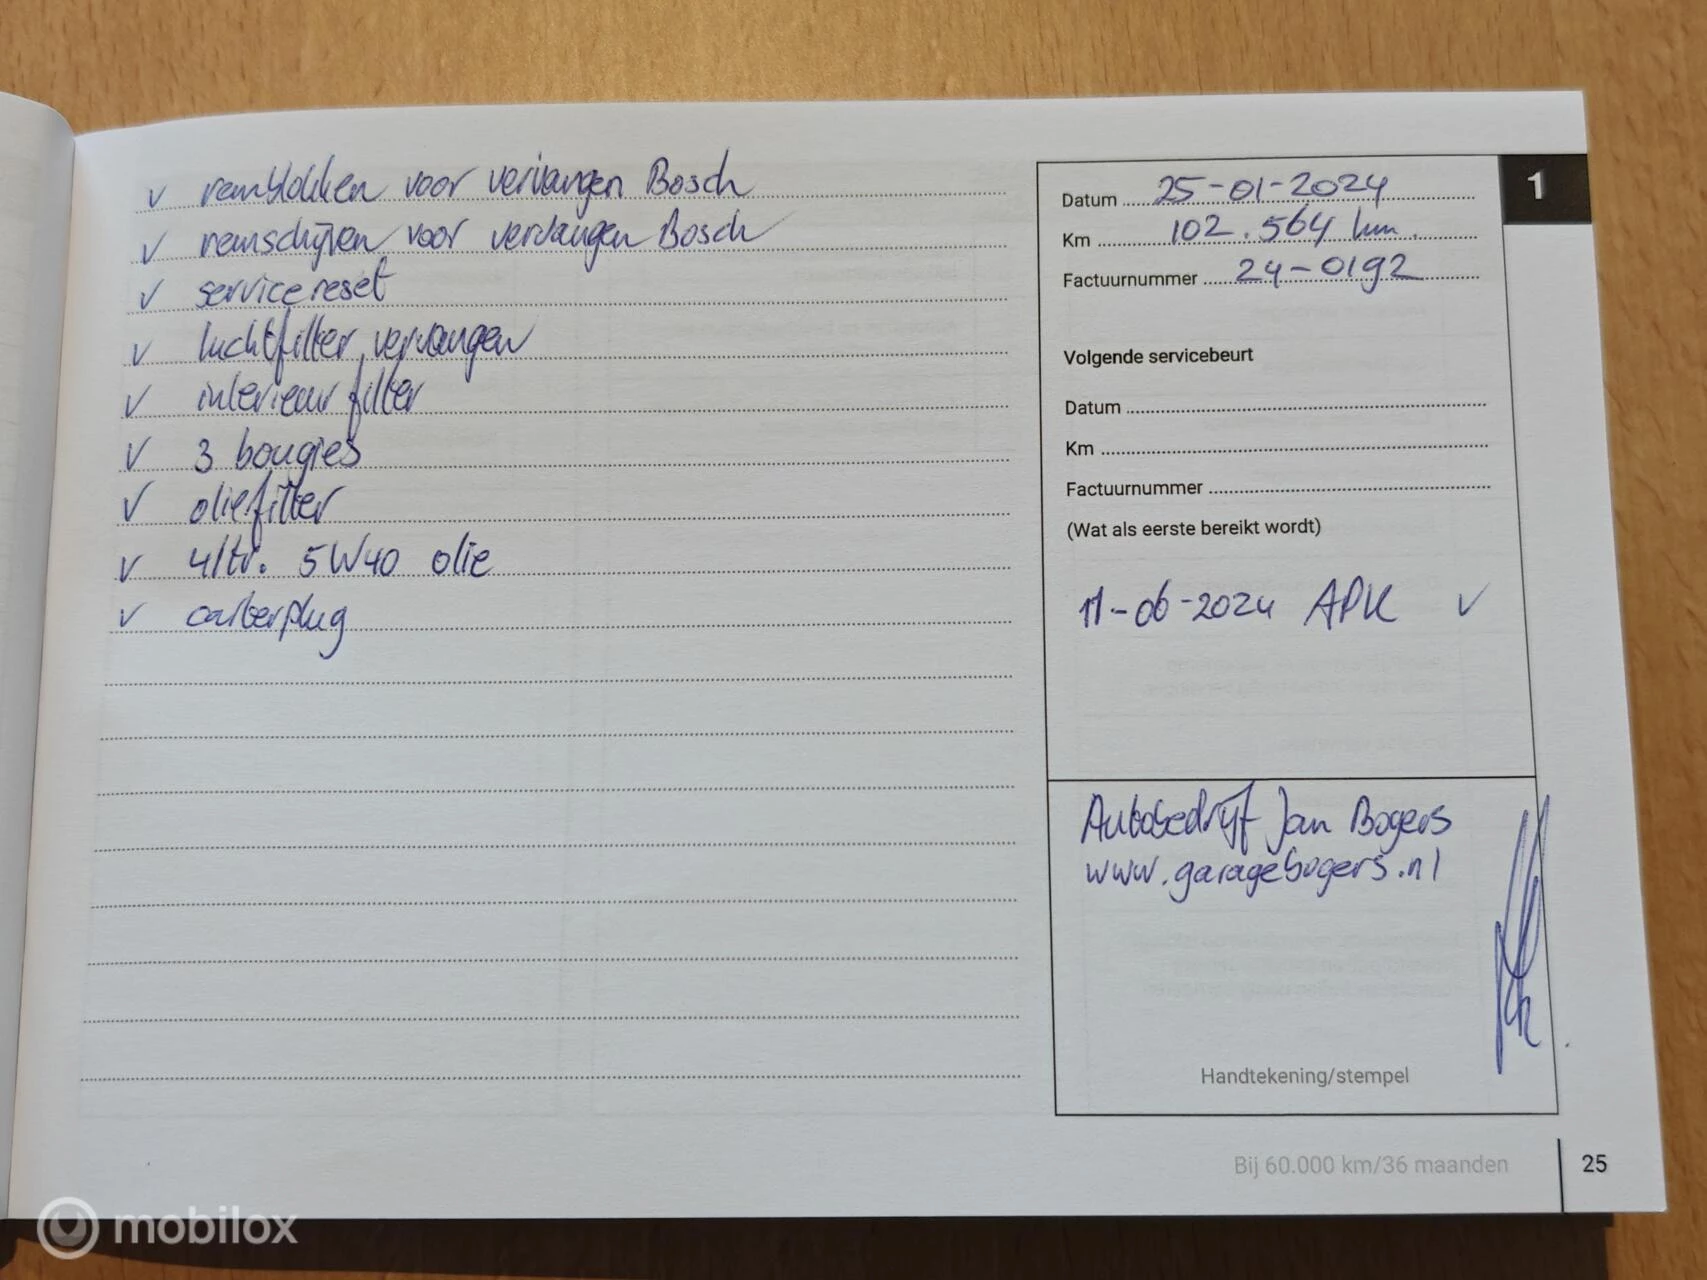 v remblokken voor vervangen Bosch
v remschijven voor vervangen Bosch
v servicereset
v luchtfilter vervangen
v interieurfilter
v 3 bougies
v oliefilter
v 4ltr. 5W40 olie
v carterplug
1
Datum 25-01-2024
Km 102.564 km.
Factuurnummer 24-0192
Volgende servicebeurt
Datum
Km
Factuurnummer
(Wat als eerste bereikt wordt)
11-06-2024 APK v
Autobedrijf Jan Bogers
www.garagebogers.nl
Handtekening/stempel
Bij 60.000 km/36 maanden 25
mobilox